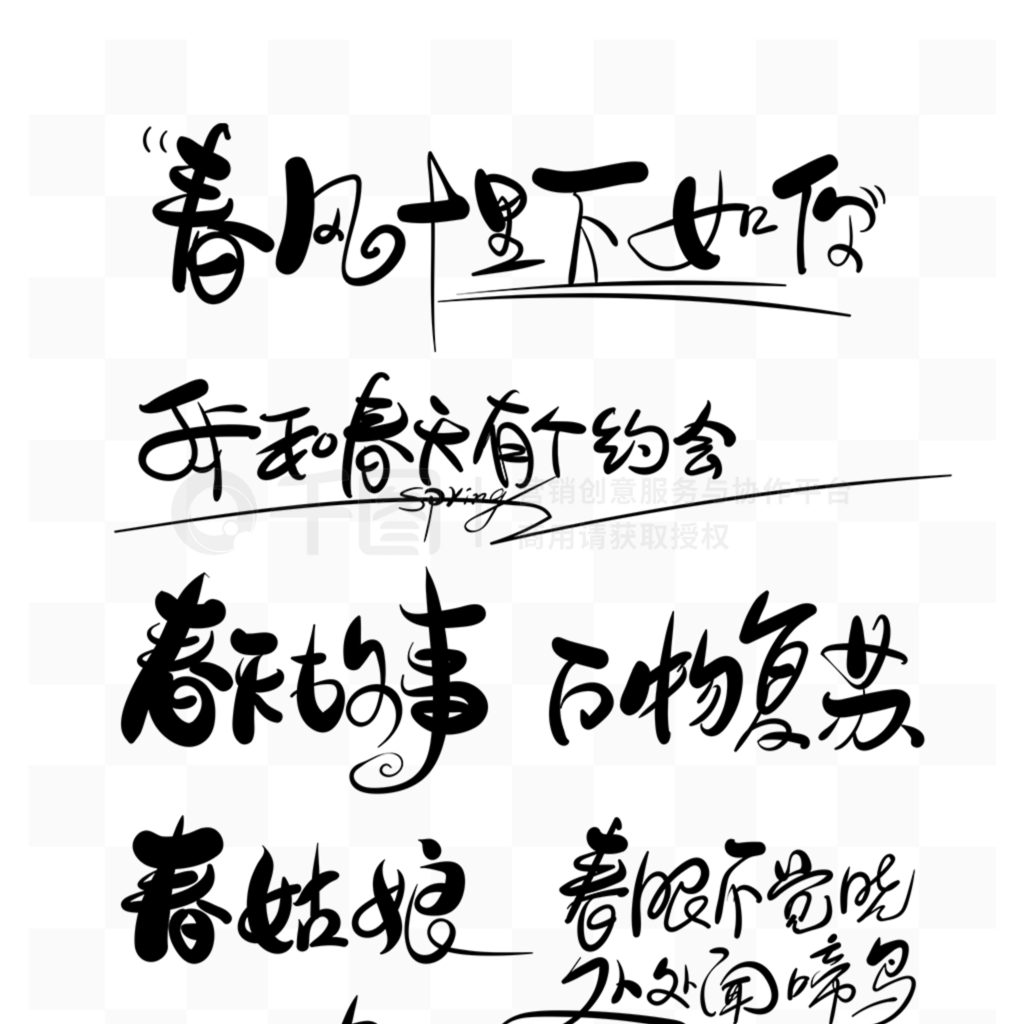 春风十里不如你
我和春天有个约会
spring
千图 营销创意服务与协作平台
商用请获取授权
春天故事 万物复苏
春姑娘
春眠不觉晓
处处闻啼鸟